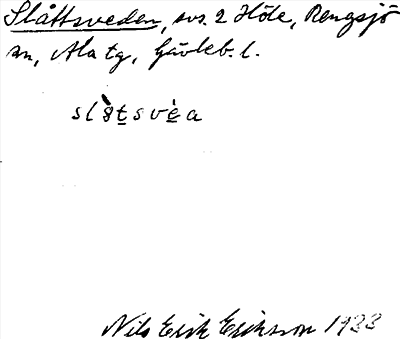 Slåttsveden, svs. 2 Höle, Rengsjö
sn, Ala tg, Gävleb. l.
slåtsvèa
Nils Erik Eriksson 1933